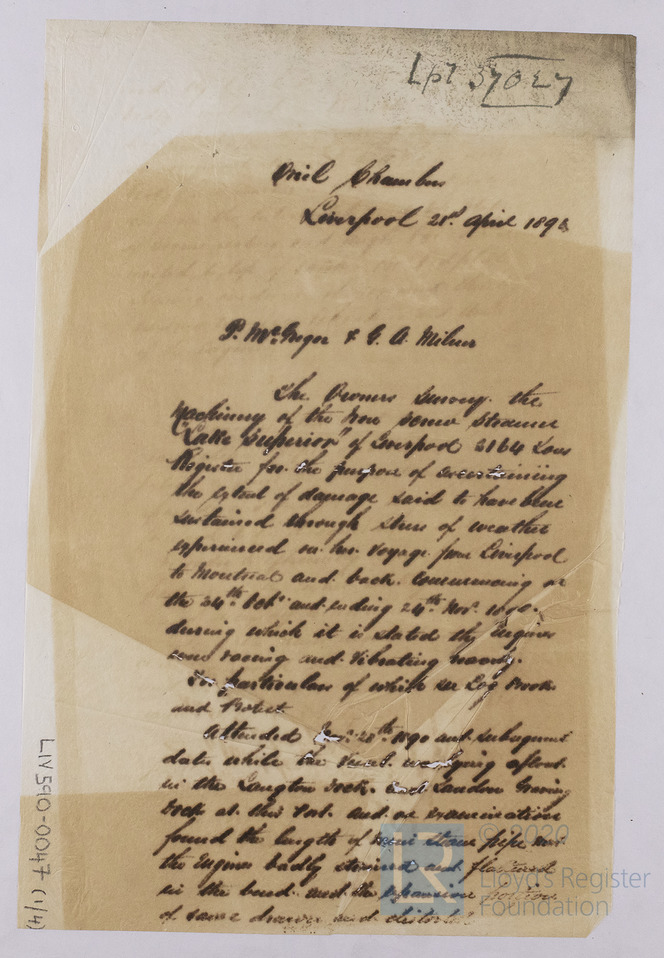 Lpl 37027
Oriel Chambers
Liverpool 28th April 189
P. McGregor & G. A. Milner
The Owners Survey the
Machinery of the Iron screw Steamer
"Lake Superior" of Liverpool 2164 Tons
Register for the purpose of ascertaining
the extent of damage said to have been
sustained through stress of weather
experienced on her voyage from Liverpool
to Montreal and back. Commencing on
the 24th Octr and ending 24th Novr 1890.
during which it is stated the Engines
were racing and vibrating heavily.
For particulars of which see Log Book
and Protest
Attended 28th 1890 and subsequent
dates while the Vessel was lying afloat
in the Langton Dock. and Sandon Graving
Dock at this Port. and on examination
found the length of main steam pipe over
the Engines badly strained and flattened
in the bend. and the expansion
of same drawn and distorted.
LIV590-0047 (1/4)
© 2020
Lloyd's Register
Foundation